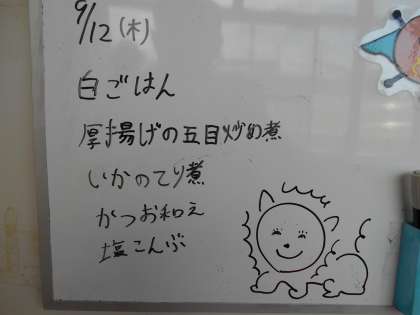 9/12(木)
白ごはん
厚揚げの五目炒め煮
いかのてり煮
かつお和え
塩こんぶ